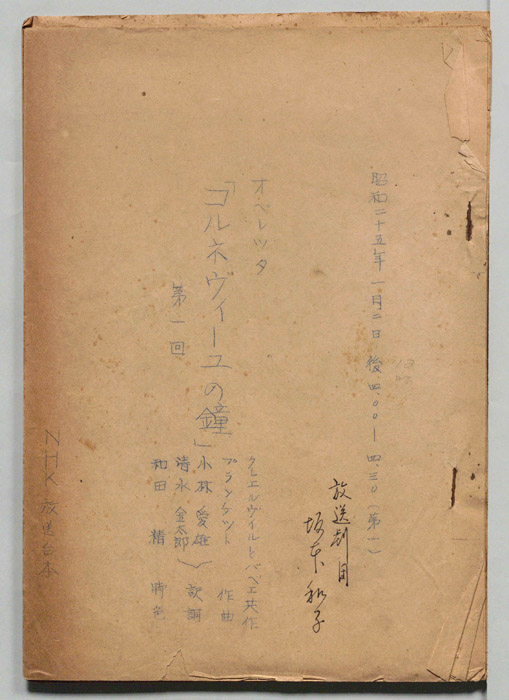 昭和二十五年一月二日 後、四、〇〇ー四、三〇(第一)
オペレッタ
「コルネヴィーユの鐘」
第一回
クレエルヴイルとバベエ共作
プランケット 作曲
小林 愛雄
清水 金太郎 訳詞
和田 精 脚色
放送劇団
坂本 和子
NHK 放送台本